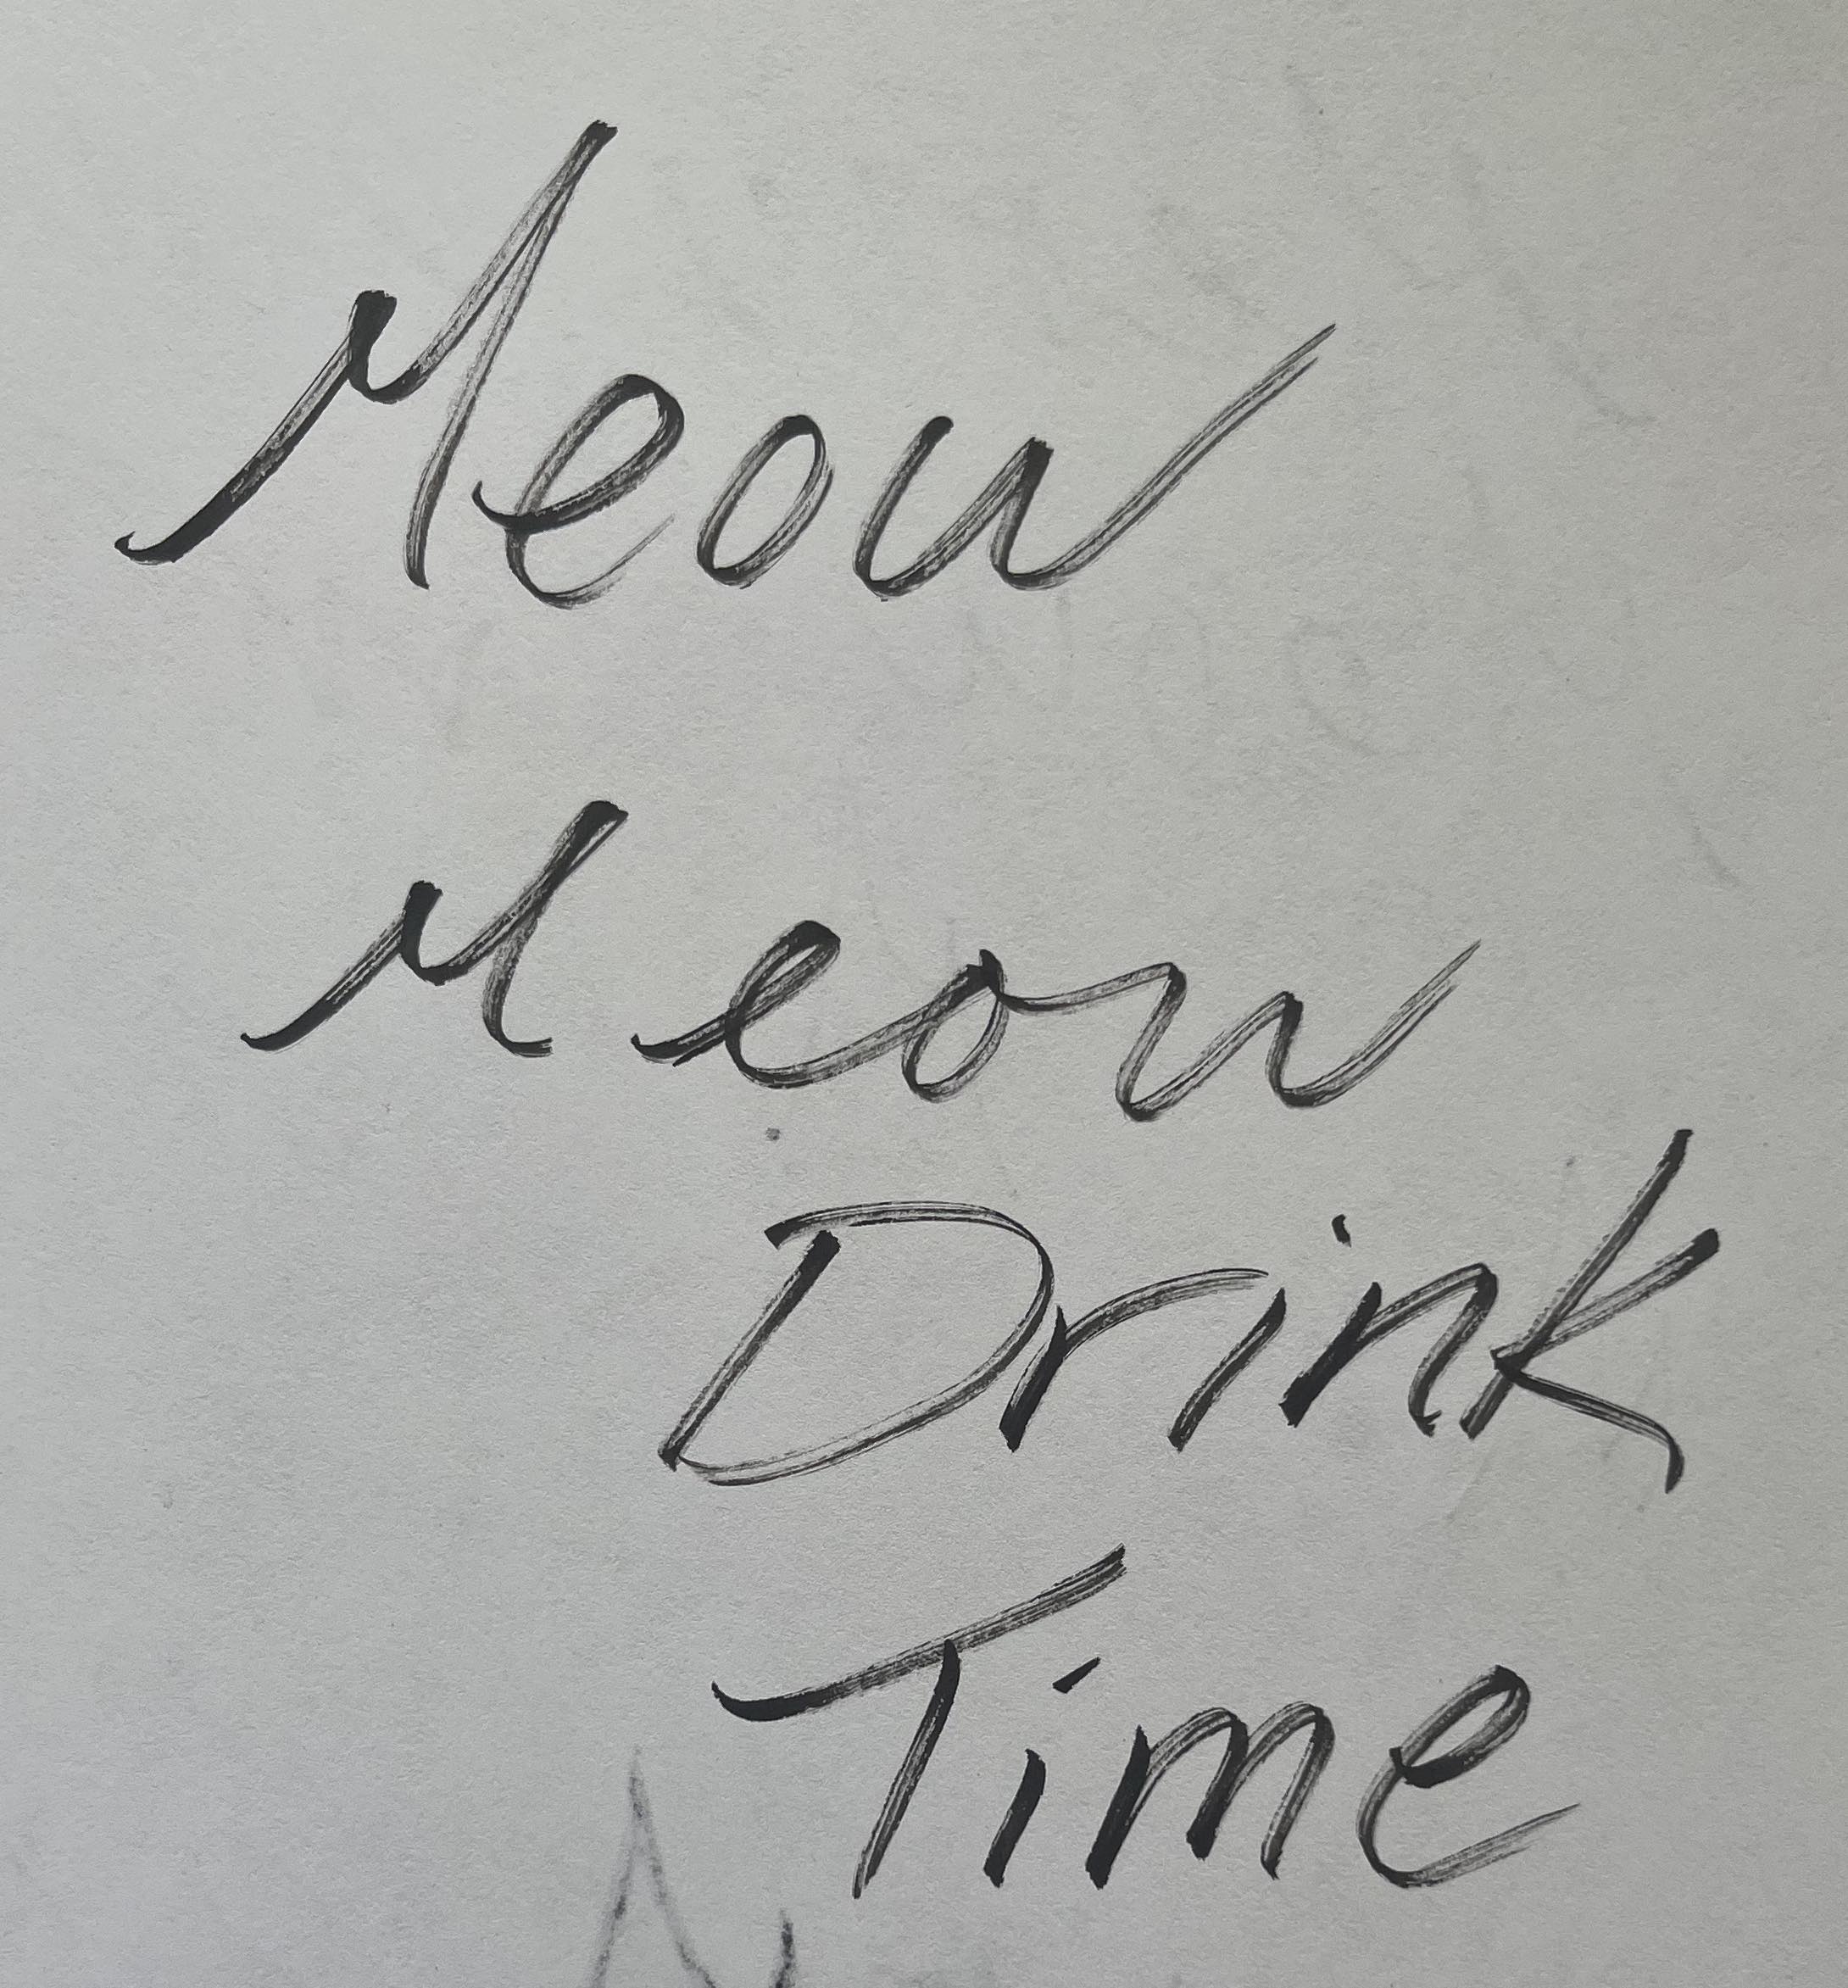 Meow
Meow
Drink
Time